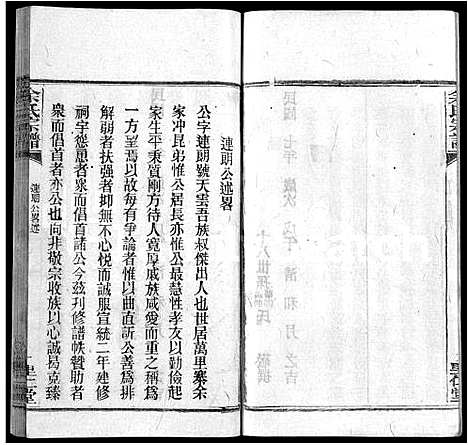 民國七年歲次戊午清和月之吉
十八世孫
氏
撰
余氏宗譜
連朗公述畧
公字連朗號天雲吾族叔傑出人也世居萬里寨余
家冲昆弟惟公居長亦惟公最賢性孝友以勤儉起
家生平秉質剛方待人寬厚戚族咸愛而重之稱爲
一方望焉以故每有爭論者惟以曲直訴公善爲排
解弱者扶強者抑無不心悅而誠服宣統二年建修
祠宇慫恿者衆而倡首諸公今玆刋修譜帙贊助者
衆而倡首者亦公也向非敬宗收族以心誠曷克臻
余氏宗譜
連朗公畧述